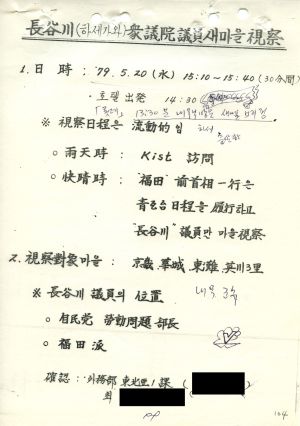 長谷川(하세가와)衆議院議員 새마을 視察
1. 日 時 : '79. 5. 20 (水) 15:10 ~ 15:40 (30分間)
· 호텔 出発 14:30
13:30
※ 視察日程은 流動的임
○ 雨天時 : Kist 訪問
○ 快晴時 : "福田" 前首相 一行은
日程을 履行하고
"長谷川" 議員만 마을 視察
2. 視察対象마을 : 京畿 華城 東灘
3里
※ 長谷川 議員의 位置
○ 自民党 労動問題 部長
○ 福田派
確認 : 外務部 東北亜 1課 (
104